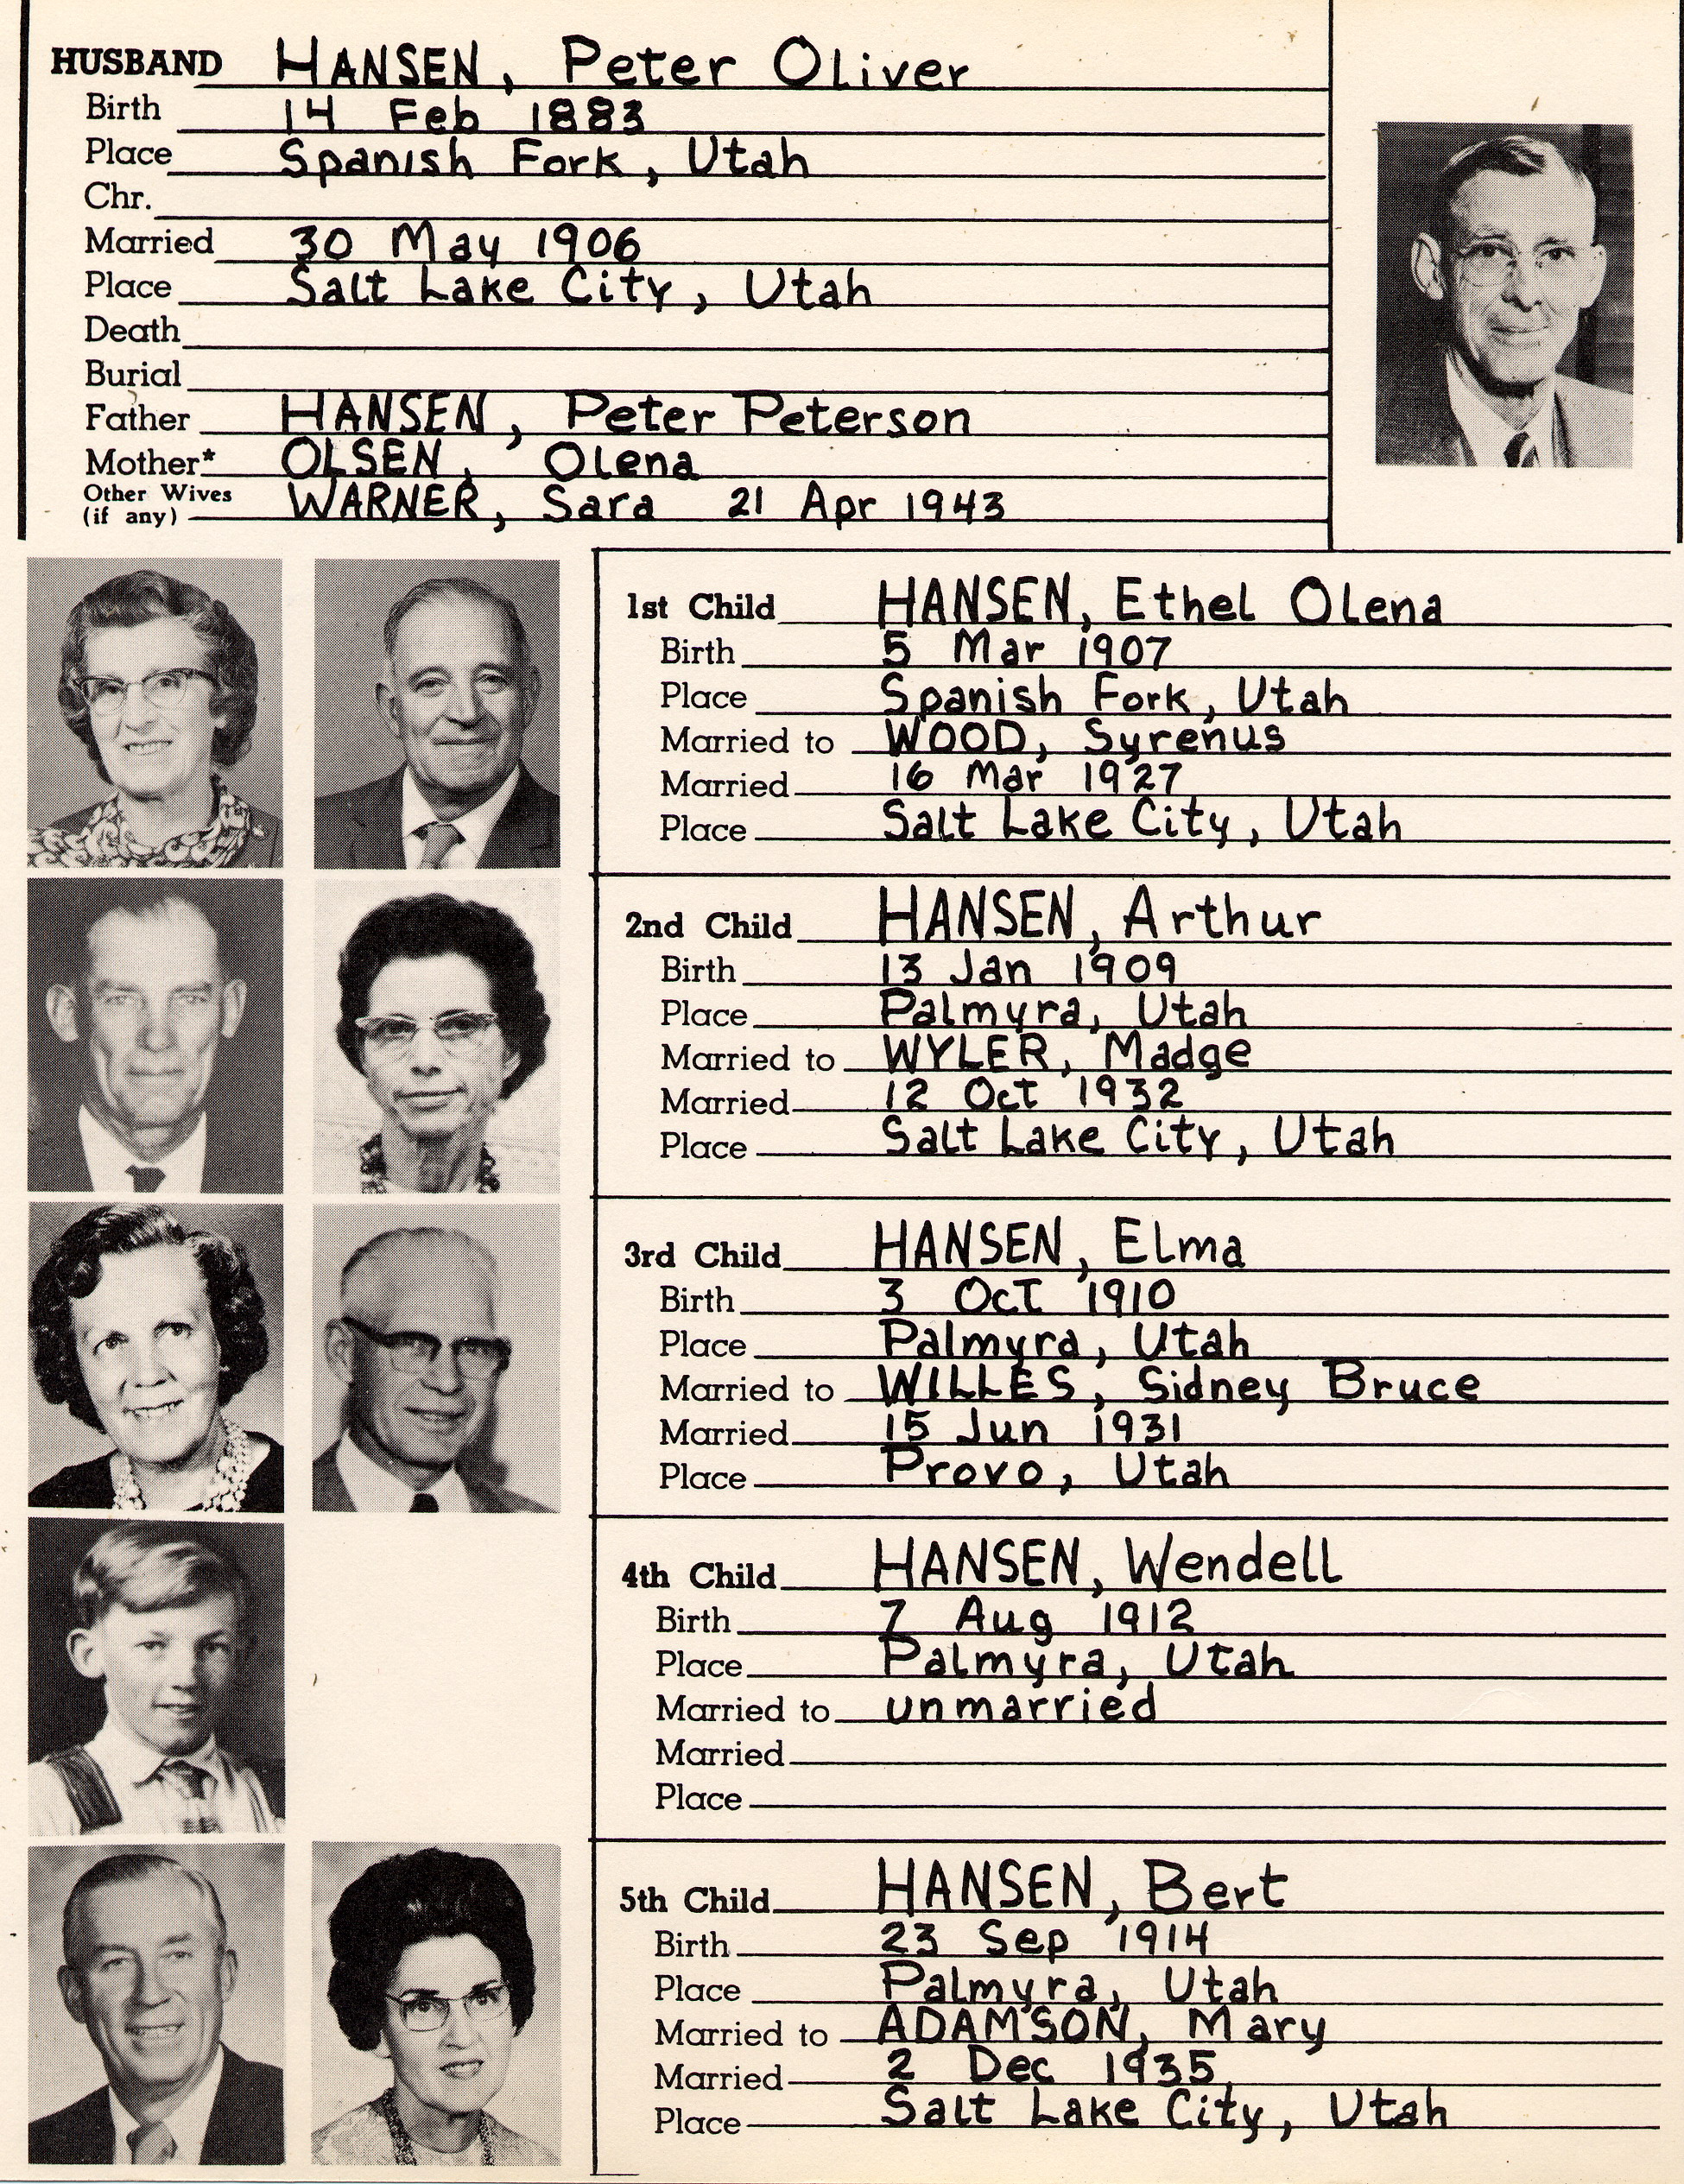 HUSBAND HANSEN, Peter Oliver
Birth 14 Feb 1883
Place Spanish Fork, Utah
Chr.
Married 30 May 1906
Place Salt Lake City, Utah
Death
Burial
Father HANSEN, Peter Peterson
Mother* OLSEN, Olena
Other Wives (if any) WARNER, Sara 21 Apr 1943
1st Child HANSEN, Ethel Olena
Birth 5 Mar 1907
Place Spanish Fork, Utah
Married to WOOD, Syrenus
Married 16 Mar 1927
Place Salt Lake City, Utah
2nd Child HANSEN, Arthur
Birth 13 Jan 1909
Place Palmyra, Utah
Married to WYLER, Madge
Married 12 Oct 1932
Place Salt Lake City, Utah
3rd Child HANSEN, Elma
Birth 3 Oct 1910
Place Palmyra, Utah
Married to WILLES, Sidney Bruce
Married 15 Jun 1931
Place Provo, Utah
4th Child HANSEN, Wendell
Birth 7 Aug 1912
Place Palmyra, Utah
Married to unmarried
Married
Place
5th Child HANSEN, Bert
Birth 23 Sep 1914
Place Palmyra, Utah
Married to ADAMSON, Mary
Married 2 Dec 1935
Place Salt Lake City, Utah